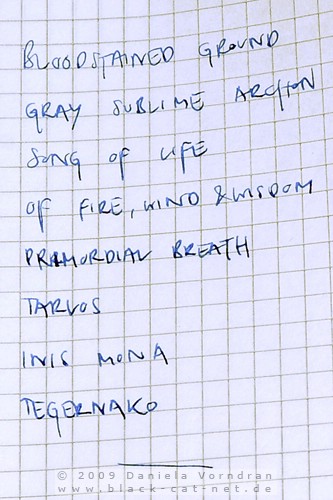 BLOODSTAINED GROUND
GRAY SUBLIME ARCHON
SONG OF LIFE
OF FIRE, WIND & WISDOM
PRIMORDIAL BREATH
TARVOS
INIS MONA
TEGERNAKO
© 2009 Daniela Vorndran
www.black-cat-net.de